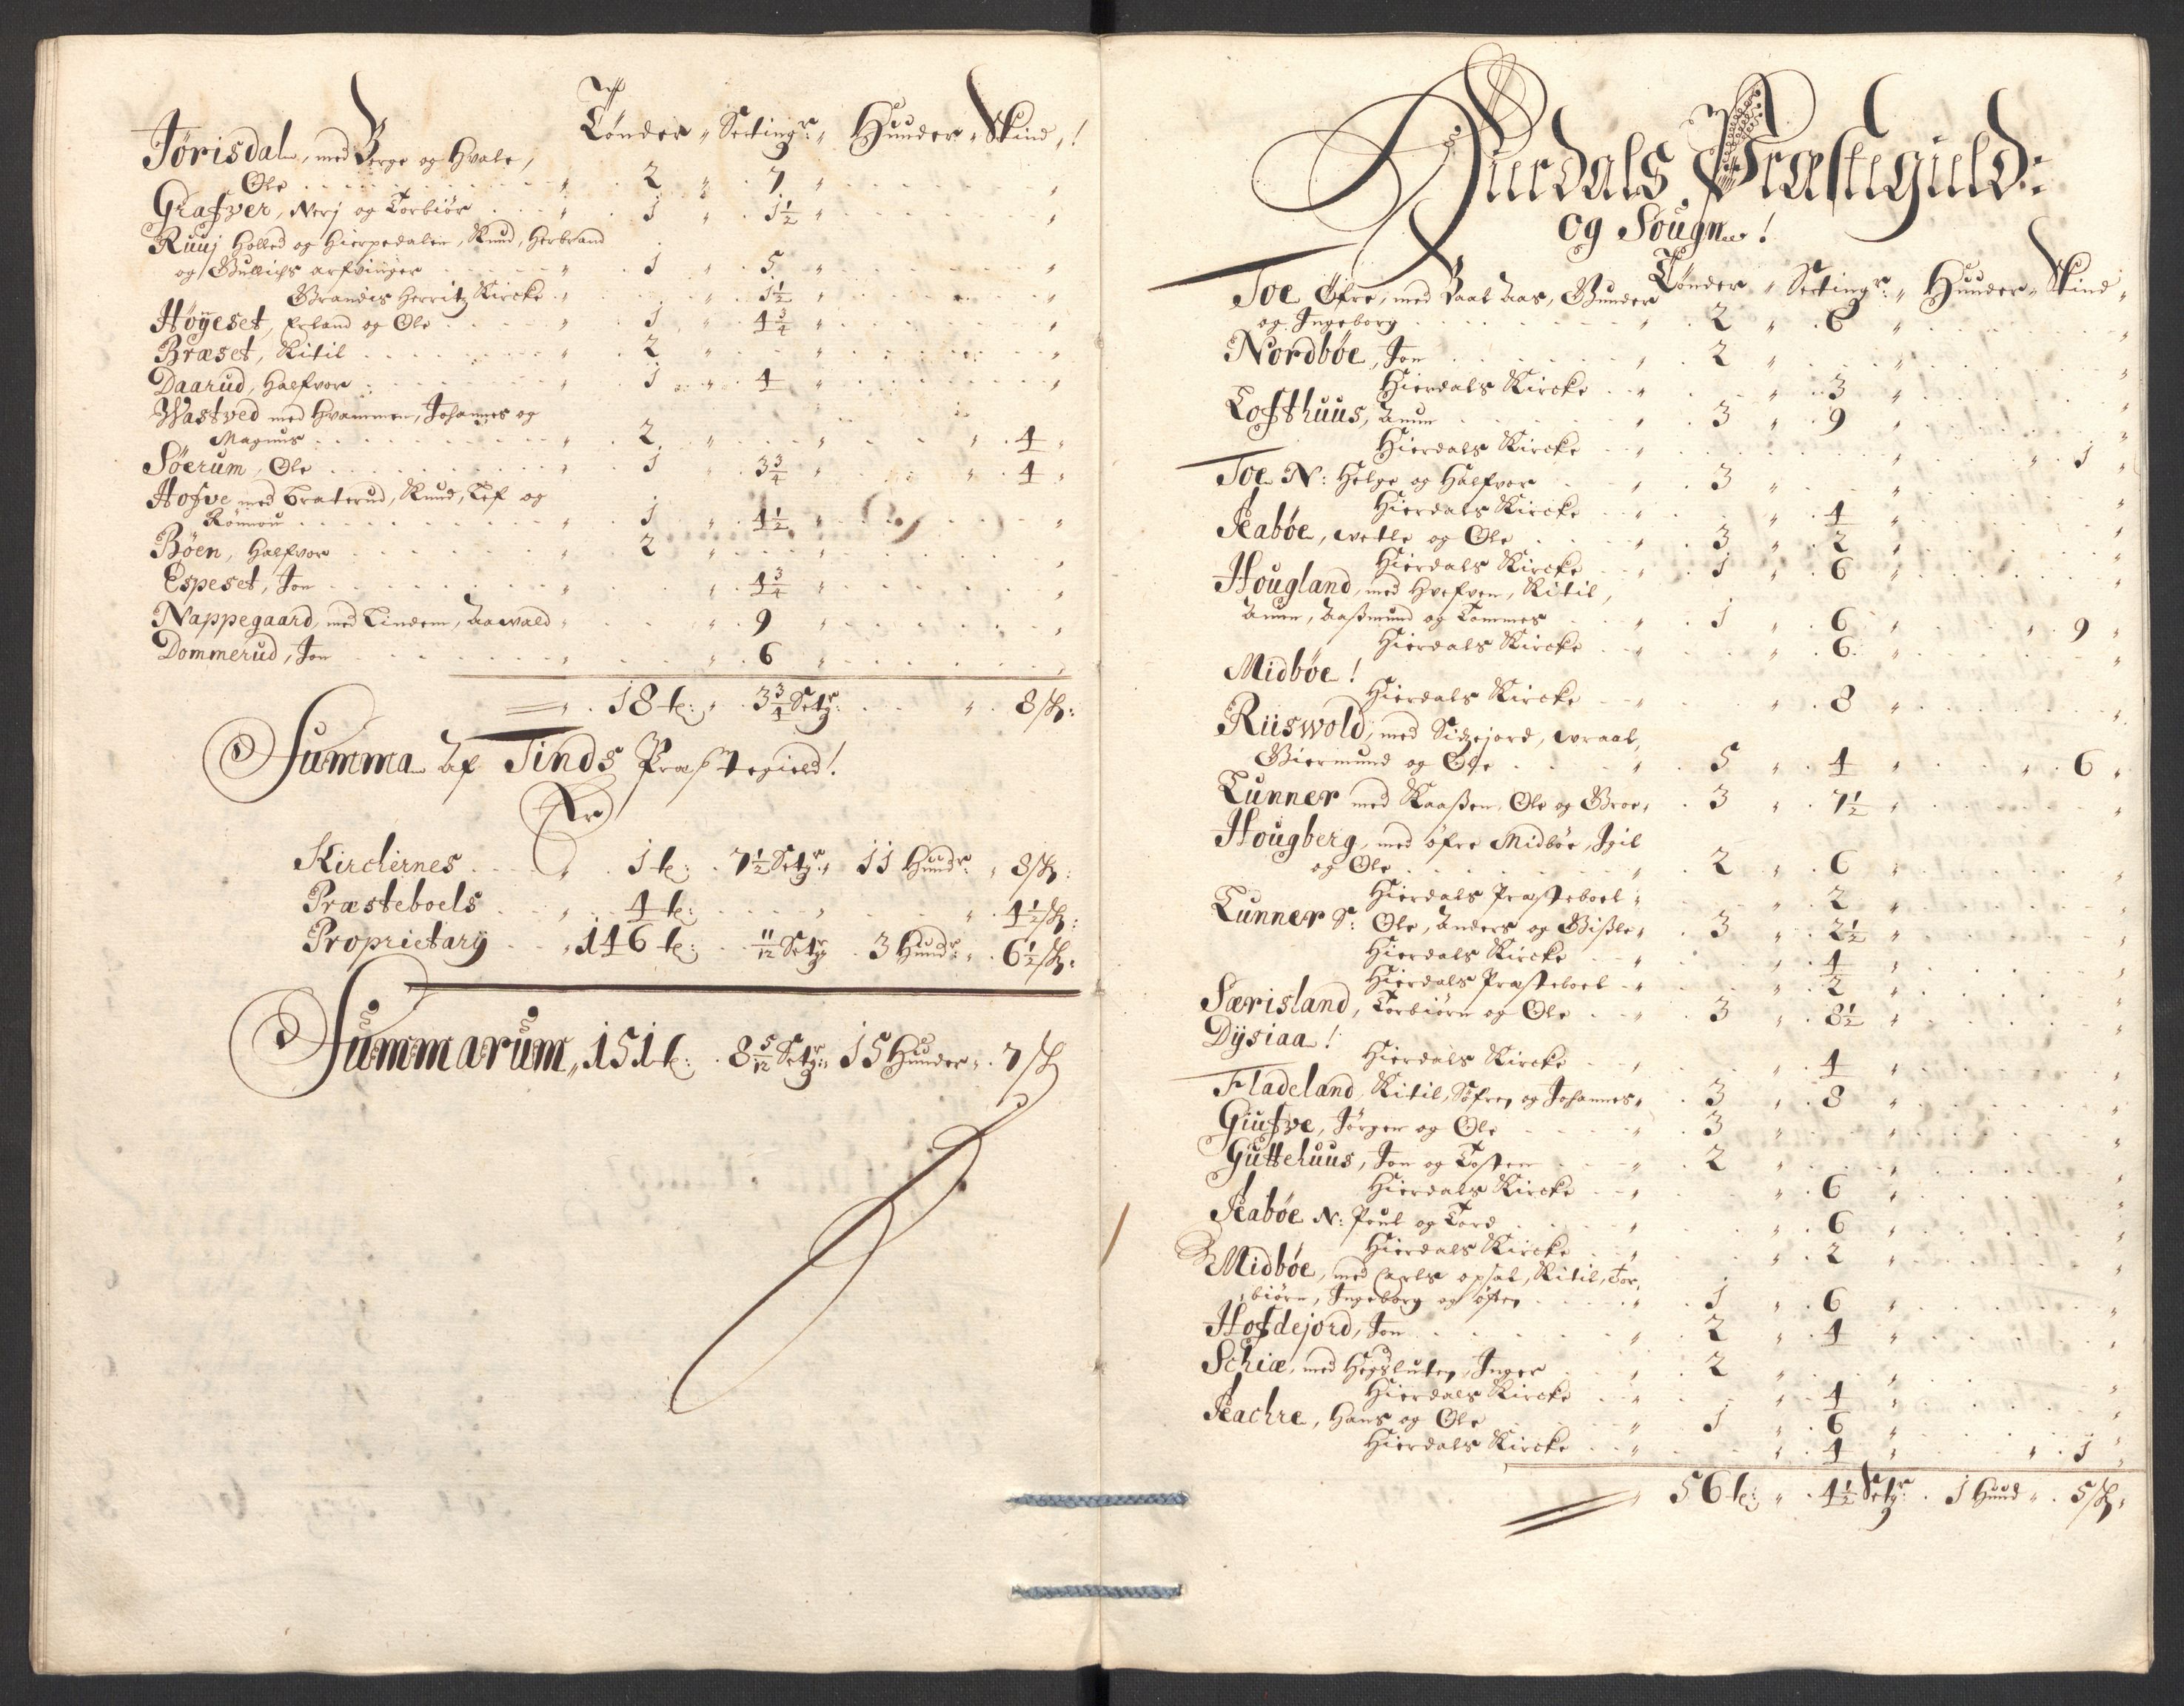 Tønder " Setingr: " Hunder " Skind "!
Jørisdal, med Berge og Hvale,
Ole . . . . " . 2 " . 7 "
Grafver, Nerj og Torbiør . . " . 1 " . 1½ "
Ruuj Holled og Hierpedalen, Knud, Herbrand
og Gullichs arfvinger . . " . 1 " . 5 "
Brandis Herritz Kircke . " . 1½ "
Høyeset, Erland og Ole . . " . 1 " . 4¾ "
Bræset, Kitil . . . . " . 2 "
Daarud, Halfvor . . . " . 1 " . 4 "
Wastved med Hvammen, Johannes og
Magnus . . . . " . 2 " . . " . 4 "
Søerum, Ole . . . . " . 1 " . 3¾ " . . " . 4 "
Hofve med Braterud, Knud, Lef og
Rønnou . . . . " . 1 " . 4½ "
Bøen, Halfvor . . . " . 2 "
Espeset, Jon . . . . " . 4¾ "
Nappegaard, med Linden, Aawald " . . " . 9 "
Dommerud, Jon . . . . " . 6 "
" . 18 t: " . 3¾ Setgr: . . " . 8 sk:
Summa Af Tinds Præstegield!
Er
Kirchernes . . " 1 t: . 7½ Setgr: " 11 Hundr: " 8 sk:
Præsteboels . . " . 4 t: . . " . . " . 4½ sk:
Proprietarij . . " 146 t: . 11/12 Setgr . 3 Hundr: " . 6½ sk:
Summarum, 151 t: . 8 5/12 Setgr: 15 Hunder " . 7 sk
Hierdals Præstegield:
og Sougn !
Tønder " Setingr: " Hunder " Skind "
Toe Øfre, med Vaal Aas, Gunder
og Ingeborg . . . " . 2 " . 6 "
Nordbøe, Jon . . . " . 2 "
Hierdals Kircke . . " . 3 "
Lofthuus, Anun . . . " . 3 " . 9 "
Hierdals Kircke . . " . . " . 1 "
Toe N: Helge og Halfvor . " . 3 "
Hierdals Kircke . . " . 4 "
Seabøe, wetle og Ole . . " . 3 " . 2 "
Hierdals Kircke . . " . 1 " . 6 "
Hougland, med Hvefven, Kitil,
Anun, Aassmund og Tommes . " . 1 " . 6 " . . " . 9 "
Hierdals Kircke . . " . 6 "
Midbøe !
Hierdals Kircke . . " . 8 "
Riiswold, med Sidzejord, wraal,
Giermund og Ole . . . " . 5 " . 4 " . . " . 6 "
Lunner med Kaassen, Ole og Groe " . 3 " . 7½ "
Hougberg, med øfre Midbøe, Igil
og Ole . . . . " . 2 " . 6 "
Hierdals Præsteboel " . . " . 2 "
Lunner S: Ole, Anders og Gissle " . 3 " . 2½ "
Hierdals Kircke . . " . 4 "
Hierdals Præsteboel . " . 2 "
Særisland, Torbiørn og Ole . . " . 3 " . 8½ "
Dysiaa !
Hierdals Kircke . . " . 4 "
Fladeland, Kitil, Søfren og Johannes " . 3 " . 8 "
Giufve, Jørgen og Ole . . " . 3 "
Guttehuus, Jon og Tosten . . " . 2 "
Hierdals Kircke . . " . 6 "
Seabøe N: Poul og Tord . . " . 6 "
Hierdals Kircke . . " . 2 "
Midbøe, med Carls opsal, Kitil, Tor,
biørn, Ingeborg og østen . . " . 1 " . 6 "
Hofdejord, Jon . . . " . 2 " . 4 "
Schiæ, med Hegsluten, Inger . . " . 2 "
Hierdals Kircke . . " . 4 "
Seachre, Hans og Ole . . " . 1 " . 6 "
Hierdals Kircke . . " . 4 " . . " . 1 "
" 56 t: " . 4½ Setgr: . 1 Hund " . 5 sk "